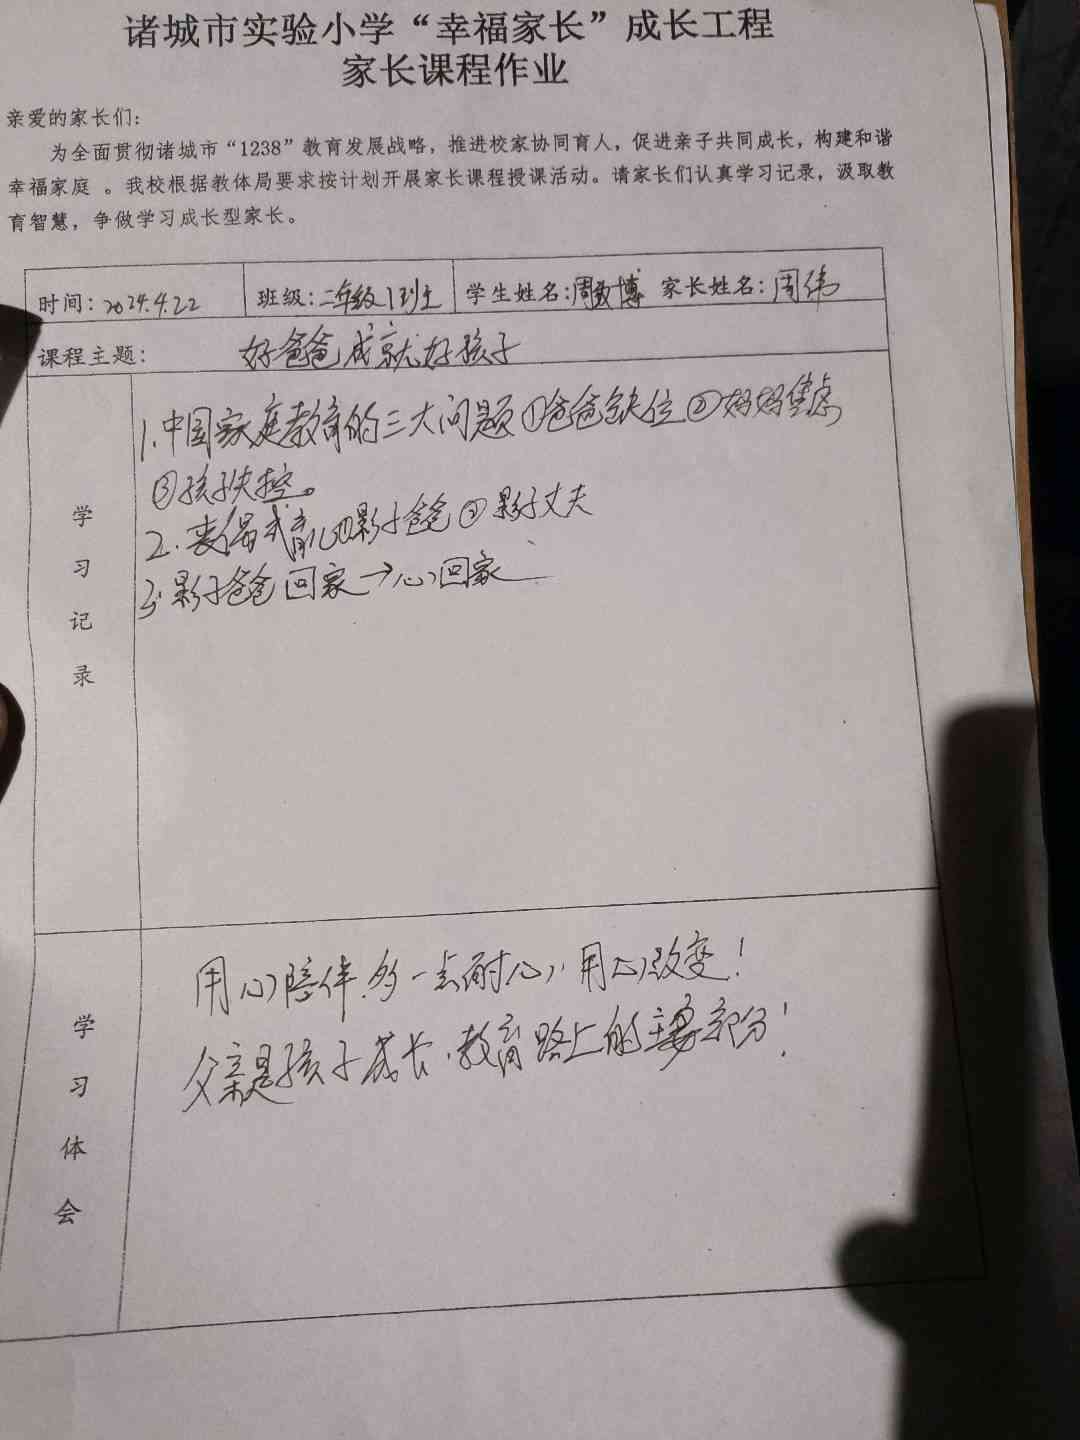 诸城市实验小学“幸福家长”成长工程
家长课程作业
亲爱的家长们：
为全面贯彻诸城市“1238”教育发展战略，推进校家协同育人，促进亲子共同成长，构建和谐
幸福家庭 。我校根据教体局要求按计划开展家长课程授课活动。请家长们认真学习记录，汲取教
育智慧，争做学习成长型家长。
时间：2024.4.22 班级：二年级1班 学生姓名：周致博 家长姓名：周伟
课程主题： 好爸爸成就好孩子
学习记录
1.中国家庭教育的三大问题①爸爸缺位②妈妈焦虑
③孩子失控。
2.丧偶式育儿①影子爸爸②影子丈夫
3.影子爸爸回家→心回家
学习体会
用心陪伴,多一点耐心,用心改变！
父亲是孩子成长.教育路上的主要部分！